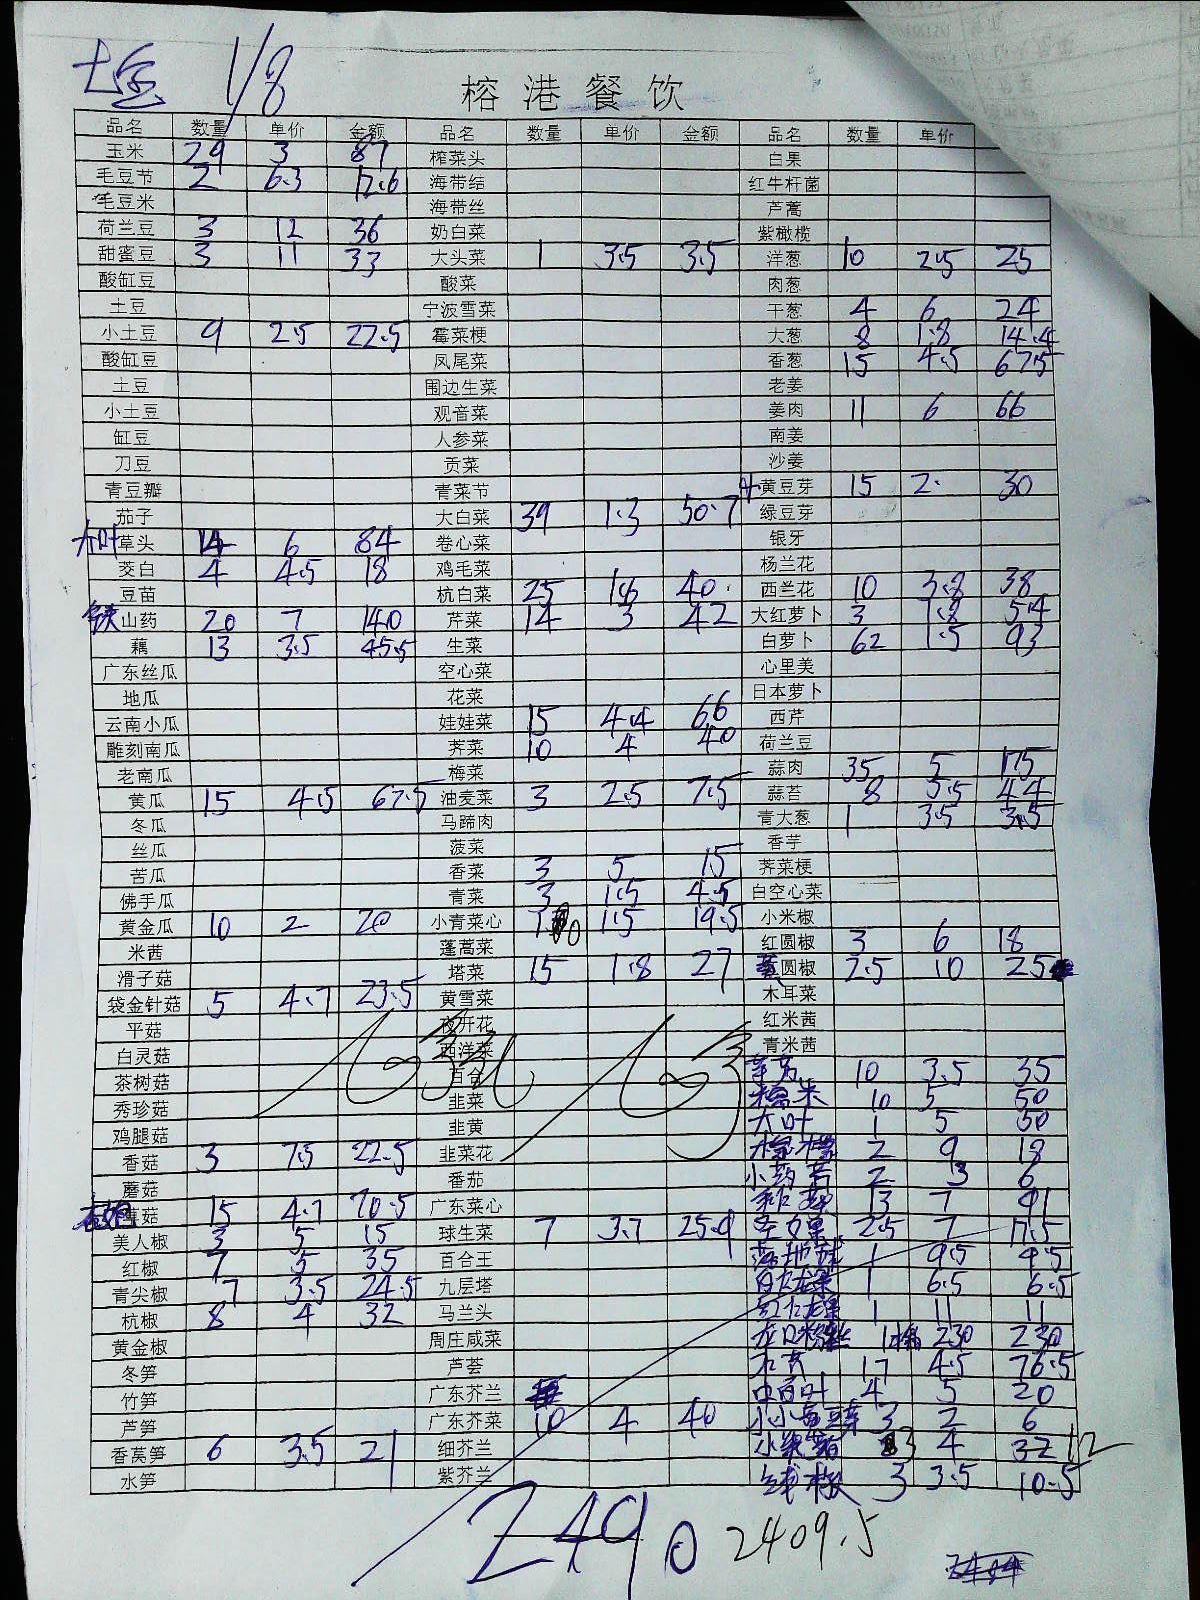 1/8
榕港餐饮
品名 数量 单价 金额 品名 数量 单价 金额 品名 数量 单价
玉米 29 3 87 榨菜头 白果
毛豆节 2 6.3 12.6 海带结 红牛杆菌
毛豆米 海带丝 芦蒿
荷兰豆 3 12 36 奶白菜 紫橄榄
甜蜜豆 3 11 33 大头菜 1 3.5 3.5 洋葱 10 2.5 25
酸缸豆 酸菜 肉葱
土豆 宁波雪菜 干葱 4 6 24
小土豆 9 2.5 22.5 霉菜梗 大葱 8 1.8 14.4
酸缸豆 凤尾菜 香葱 15 4.5 67.5
土豆 围边生菜 老姜
小土豆 观音菜 姜肉 11 6 66
缸豆 人参菜 南姜
刀豆 贡菜 沙姜
青豆瓣 青菜节 黄豆芽 15 2. 30
茄子 大白菜 39 1.3 50.7 绿豆芽
大叶草头 14 6 84 卷心菜 银牙
茭白 4 4.5 18 鸡毛菜 杨兰花
豆苗 杭白菜 25 1.6 40. 西兰花 10 3.8 38
铁山药 20 7 140 芹菜 14 3 42 大红萝卜 3 1.8 5.4
藕 13 3.5 45.5 生菜 白萝卜 62 1.5 93
广东丝瓜 空心菜 心里美
地瓜 花菜 日本萝卜
云南小瓜 娃娃菜 15 4.4 66 西芹
雕刻南瓜 荠菜 10 4 40 荷兰豆
老南瓜 梅菜 蒜肉 35 5 175
黄瓜 15 4.5 67.5 油麦菜 3 2.5 7.5 蒜苔 8 5.5 44
冬瓜 马蹄肉 青大葱 1 3.5 3.5
丝瓜 菠菜 香芋
苦瓜 香菜 3 5 15 荠菜梗
佛手瓜 青菜 3 1.5 4.5 白空心菜
黄金瓜 10 2 20 小青菜心 1.5 19.5 小米椒
米茜 蓬蒿菜 红圆椒 3 6 18
滑子菇 塔菜 15 1.8 27 圆椒 2.5 10 25
袋金针菇 5 4.7 23.5 黄雪菜 木耳菜
平菇 夜开花 红米茜
白灵菇 西洋菜 青米茜
茶树菇 百合 10 3.5 35
秀珍菇 韭菜 10 5 50
鸡腿菇 韭黄 大叶 1 5 50
香菇 3 7.5 22.5 韭菜花 2 9 18
蘑菇 番茄 2 3 6
菇 15 4.7 70.5 广东菜心 13 7 91
美人椒 3 5 15 球生菜 7 3.7 25.9 2.5 7 17.5
红椒 7 5 35 百合王 1 9.5 9.5
青尖椒 7 3.5 24.5 九层塔 1 6.5 6.5
杭椒 8 4 32 马兰头 1 11 11
黄金椒 周庄咸菜 龙口粉丝 230 230
冬笋 芦荟 17 4.5 76.5
竹笋 广东芥兰 4 5 20
芦笋 广东芥菜 10 4 40 3 2 6
香莴笋 6 3.5 21 细芥兰 4 32 12
水笋 紫芥兰 线椒 3 3.5 10.5
2490 2409.5